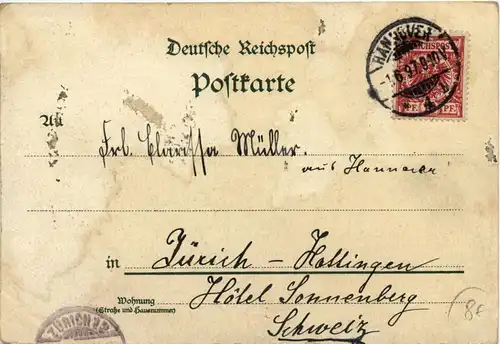 Deutsche Reichspost
Postkarte
HANNOVER
1.6.97.
REICHSPOST
An
Frl. Claritha Müller.
aus Hannover
in Zürich - Hottingen
Hôtel Sonnenberg
Wohnung
(Straße und Hausnummer)
Schweiz
ZÜRICH 12